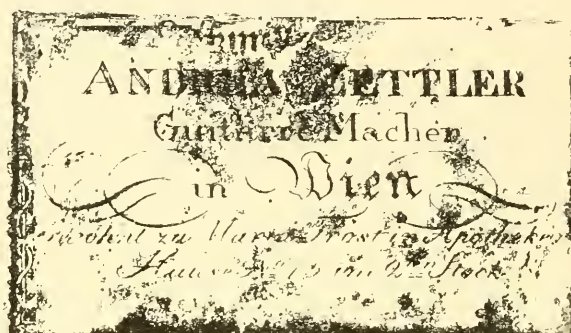 ANDREAS ZETTLER
Guitarre Macher
in Wien
wohnt zu Maria Trost in Apotheker
Hause im Stock